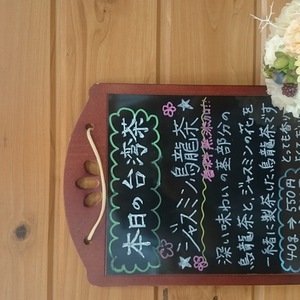 本日の台湾茶
ジャスミン烏龍茶
香料無添加!!
深い味わいの基部分の
烏龍茶と、ジャスミンの花を
一緒に製茶した烏龍茶です
とても香り
40g ⇒ 550円